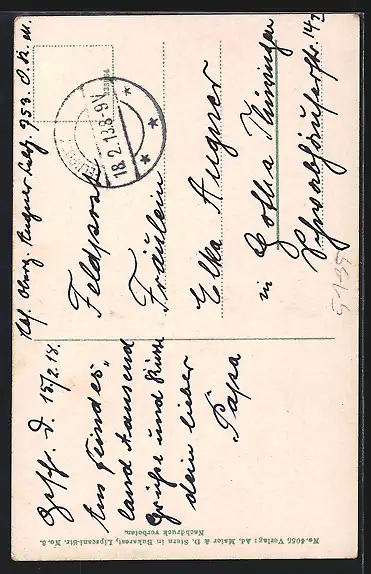 Feldpost
Fräulein
Elka Augner
in Gotha Thüringen
Schwabhäuserstr. 14
18.2.18.8-9V
5135
d. 15/2.18.
Aus Feindes-
land tausend
Grüße und Küsse
dein lieber
Papa
No. 4055 Verlag: Ad. Maier & D. Stern in Bukarest, Lipscani-Str. No. 3.
Nachdruck verboten.